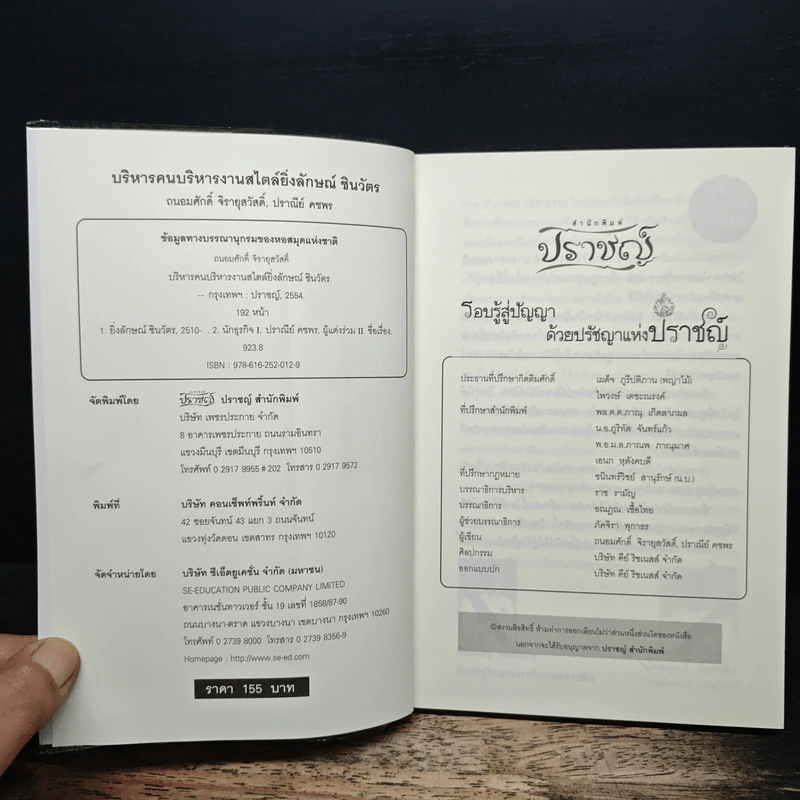 บริหารคนบริหารงานสไตล์ยิ่งลักษณ์ ชินวัตร
ถนอมศักดิ์ จิรายุสวัสดิ์, ปราณีย์ คชพร
ข้อมูลทางบรรณานุกรมของหอสมุดแห่งชาติ
ถนอมศักดิ์ จิรายุสวัสดิ์
บริหารคนบริหารงานสไตล์ยิ่งลักษณ์ ชินวัตร.
-- กรุงเทพฯ : ปราชญ์, 2554.
192 หน้า
1. ยิ่งลักษณ์ ชินวัตร, 2510- . 2. นักธุรกิจ I. ปราณีย์ คชพร, ผู้แต่งร่วม II. ชื่อเรื่อง.
923.8
ISBN : 978-616-252-012-9
จัดพิมพ์โดย ปราชญ์ ปราชญ์ สำนักพิมพ์
บริษัท เพชรประกาย จำกัด
8 อาคารเพชรประกาย ถนนรามอินทรา
แขวงมีนบุรี เขตมีนบุรี กรุงเทพฯ 10510
โทรศัพท์ 0 2917 9955 # 202 โทรสาร 0 2917 9572
พิมพ์ที่ บริษัท คอนเซ็พท์พริ้นท์ จำกัด
42 ซอยจันทน์ 43 แยก 3 ถนนจันทน์
แขวงทุ่งวัดดอน เขตสาทร กรุงเทพฯ 10120
จัดจำหน่ายโดย บริษัท ซีเอ็ดยูเคชั่น จำกัด (มหาชน)
SE-EDUCATION PUBLIC COMPANY LIMITED
อาคารเนชั่นทาวเวอร์ ชั้น 19 เลขที่ 1858/87-90
ถนนบางนา-ตราด แขวงบางนา เขตบางนา กรุงเทพฯ 10260
โทรศัพท์ 0 2739 8000 โทรสาร 0 2739 8356-9
Homepage : http://www.se-ed.com
ราคา 155 บาท
สำนักพิมพ์
ปราชญ์
รอบรู้สู่ปัญญา
ด้วยปรัชญาแห่งปราชญ์
ประธานที่ปรึกษากิตติมศักดิ์ เผด็จ ภูริปติภาน (พญาไม้)
ไพวงษ์ เตชะณรงค์
ที่ปรึกษาสำนักพิมพ์ พล.ต.ต.ภาณุ เกิดลาภผล
น.อ.ภูริทัต จันทร์แก้ว
พ.อ.ม.ล.ภาณพ ภาณุมาศ
เอนก หุตังคบดี
ที่ปรึกษากฎหมาย ชนินทร์วิชย์ สานุรักษ์ (น.บ.)
บรรณาธิการบริหาร ราช รามัญ
บรรณาธิการ อณฏณ เชื้อไทย
ผู้ช่วยบรรณาธิการ ภัคจิรา พุกาธร
ผู้เขียน ถนอมศักดิ์ จิรายุสวัสดิ์, ปราณีย์ คชพร
ศิลปกรรม บริษัท คีย์ ริชเนสส์ จำกัด
ออกแบบปก บริษัท คีย์ ริชเนสส์ จำกัด
©สงวนลิขสิทธิ์ ห้ามทำการลอกเลียนไม่ว่าส่วนหนึ่งส่วนใดของหนังสือ
นอกจากจะได้รับอนุญาตจาก ปราชญ์ สำนักพิมพ์